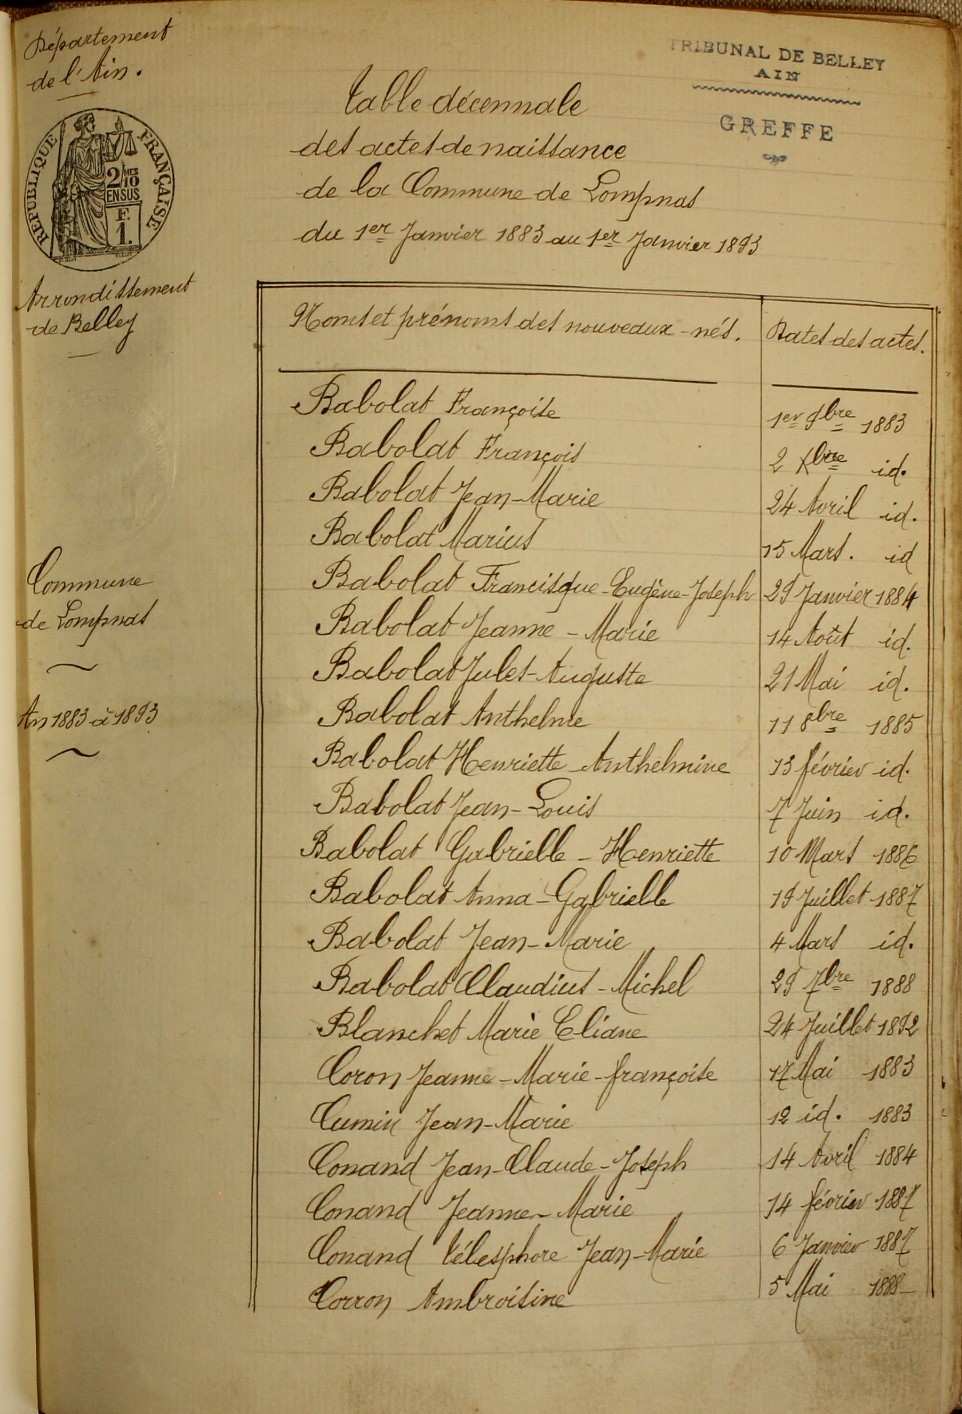 Département
de l'Ain.
RÉPUBLIQUE FRANÇAISE
2/10
EN SUS
F.
1.
Arrondissement
de Belley
Commune
de Lompnas
An 1883 à 1893
TRIBUNAL DE BELLEY
AIN
GREFFE
Table décennale
des actes de naissance
de la Commune de Lompnas
du 1er Janvier 1883 au 1er Janvier 1893
Noms et prénoms des nouveaux-nés. Dates des actes.
Babolat Françoise 1er 9bre 1883
Babolat François 2 Xbre id.
Babolat Jean-Marie 24 Avril id.
Babolat Marius 15 Mars. id
Babolat Francisque-Eugène-Joseph 29 Janvier 1884
Babolat Jeanne-Marie 14 Août id.
Babolat Jules-Auguste 21 Mai id.
Babolat Anthelme 11 8bre 1885
Babolat Henriette-Anthelmine 13 février id.
Babolat Jean-Louis 7 Juin id.
Babolat Gabrielle-Henriette 10 Mars 1886
Babolat Anna-Gabrielle 19 Juillet 1887
Babolat Jean-Marie 4 Mars id.
Babolat Claudius-Michel 29 7bre 1888
Blanchet Marie Eliane 24 Juillet 1892
Coron Jeanne-Marie-françoise 17 Mai 1883
Cumin Jean-Marie 12 id. 1883
Conand Jean-Claude-Joseph 14 Avril 1884
Conand Jeanne-Marie 14 février 1887
Conand Télesphore Jean-Marie 6 Janvier 1887
Corron Ambroisine 5 Mai 1888